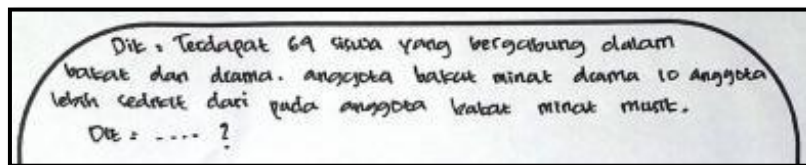 Dik : Terdapat 69 siswa yang bergabung dalam
bakat dan drama. anggota bakat minat drama 10 anggota
lebih sedikit dari pada anggota bakat minat musik.
Dit : .... ?